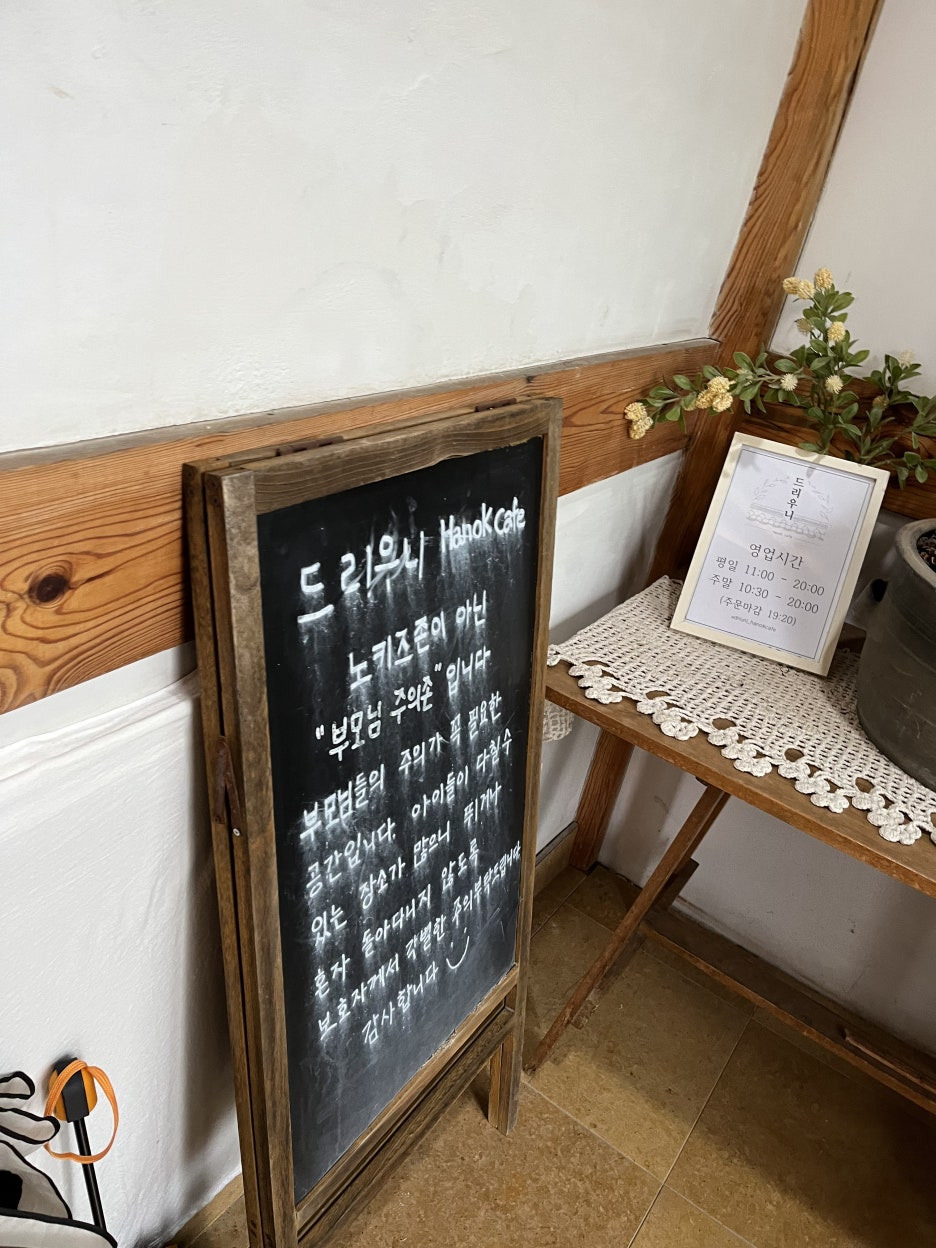 드리우니 Hanok cafe
노키즈존이 아닌
"부모님 주의존" 입니다
부모님들의 주의가 꼭 필요한
공간입니다. 아이들이 다칠수
있는 장소가 많으니 뛰거나
혼자 돌아다니지 않도록
보호자께서 각별한 주의부탁드립니다.
감사합니다
드리우니
영업시간
평일 11:00 - 20:00
주말 10:30 - 20:00
(주문마감 19:20)